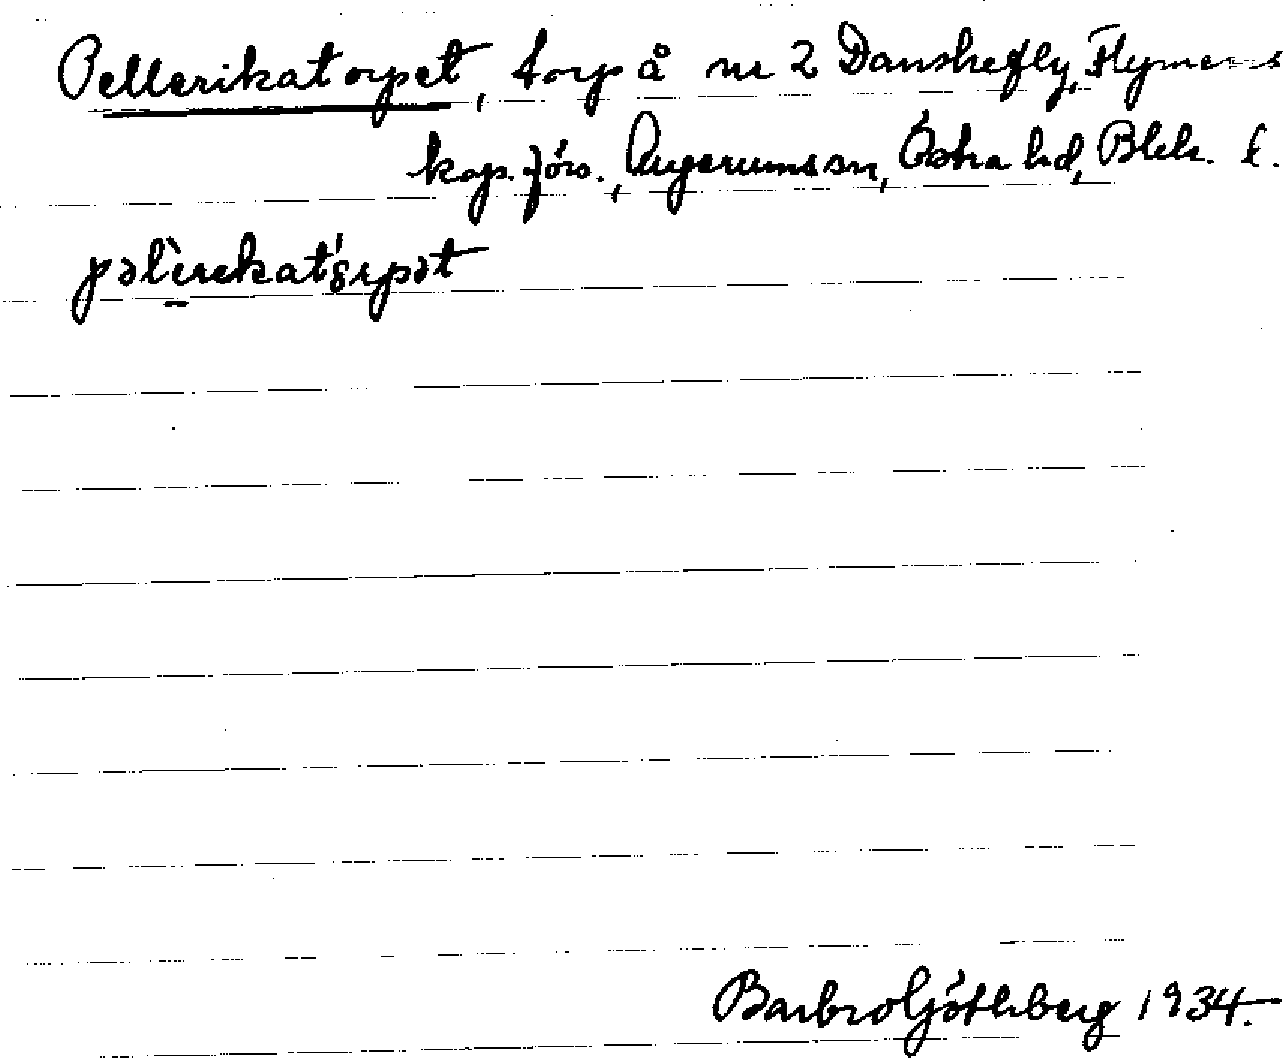 Pellerikatorpet, torp å nr 2 Danskefly, Flymens
kap. förs., Augerums sn, Östra hd, Blek. l.
pəl`ırekat́ɜrpət
Barbro Göthberg 1934.